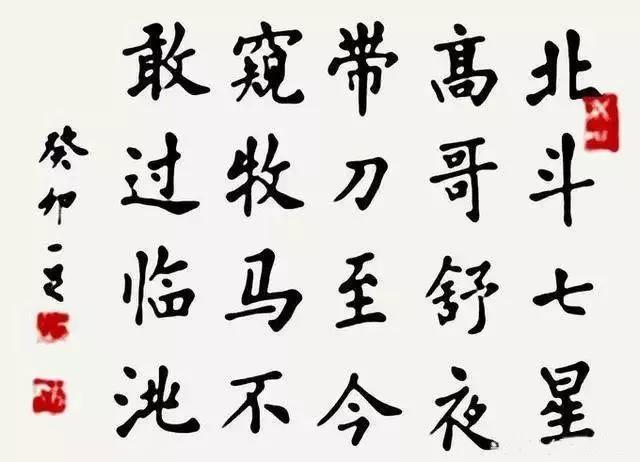 北斗七星
高哥舒夜
带刀至今
窥牧马不
敢过临洮
癸卯一